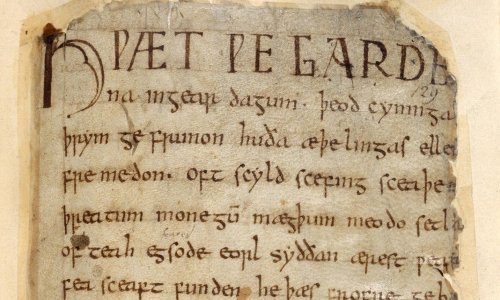 HǷÆT ǷE GARDE
na ingear dagum. þeod cyninga
þrym ge frunon huða æþelingas elle
fre medon. oft scyld scefing sceaþe
þreatum monegū mægþum meodo setla
of teah egsode eorl syððan ærest ƿear
fea sceaft funden he þæs frofre geb